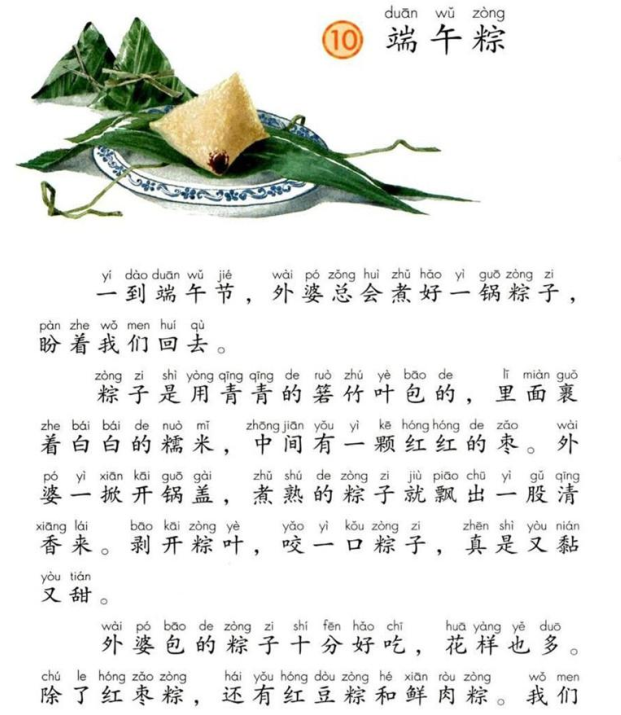 duān wǔ zòng
10 端午粽
yí dào duān wǔ jié wài pó zǒng huì zhǔ hǎo yì guō zòng zi
一到端午节，外婆总会煮好一锅粽子，
pàn zhe wǒ men huí qù
盼着我们回去。
zòng zi shì yòng qīng qīng de ruò zhú yè bāo de lǐ miàn guǒ
粽子是用青青的箬竹叶包的，里面裹
zhe bái bái de nuò mǐ zhōng jiān yǒu yì kē hóng hóng de zǎo wài
着白白的糯米，中间有一颗红红的枣。外
pó yì xiān kāi guō gài zhǔ shú de zòng zi jiù piāo chū yì gǔ qīng
婆一掀开锅盖，煮熟的粽子就飘出一股清
xiāng lái bāo kāi zòng yè yǎo yì kǒu zòng zi zhēn shì yòu nián
香来。剥开粽叶，咬一口粽子，真是又黏
yòu tián
又甜。
wài pó bāo de zòng zi shí fēn hǎo chī huā yàng yě duō
外婆包的粽子十分好吃，花样也多。
chú le hóng zǎo zòng hái yǒu hóng dòu zòng hé xiān ròu zòng wǒ men
除了红枣粽，还有红豆粽和鲜肉粽。我们